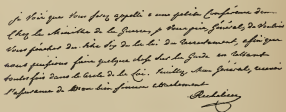 je vois que vous serez appellé a une petite Conférence du
Chez le Ministre de la Guerre, je vous prie, Général, de vouloir
vous pénétrer du de la loi du recrutement, afin que
nous puissions faire quelque chose sur la Garde en restant
toutefois dans le texte de la Loi. Veuillez Mon Général, recevoir
l'assurance de Mon bien sincère attachement
Richelieu